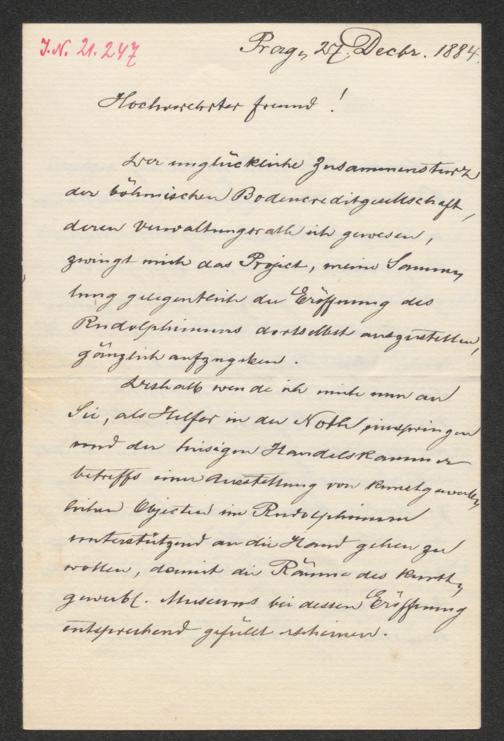 J.N. 21.247
Prag, 27. Decbr. 1884.
Hochverehrter Freund!
Der unglückliche Zusammensturz
der böhmischen Bodencreditgesellschaft,
deren Verwaltungsrath ich gewesen,
zwingt mich das Project, meine Samm-
lung gelegentlich der Eröffnung des
Rudolphinums dortselbst auszustellen,
gänzlich aufzugeben.
Deshalb wende ich mich nun an
Sie, als Helfer in der Noth, einspringen
und der hiesigen Handelskammer
betreffs einer Ausstellung von kunstgewerb-
lichen Objecten im Rudolphinum
unterstützend an die Hand gehen zu
wollen, damit die Räume des kunst-
gewerbl. Museums bei dessen Eröffnung
entsprechend gefüllt erscheinen.